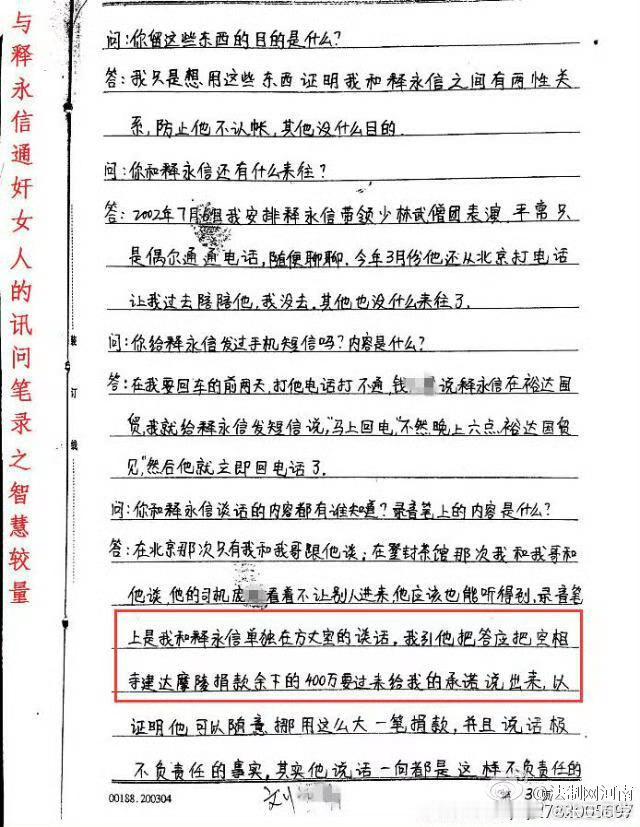 与释永信通奸女人的讯问笔录之智慧较量
装
订
线
问:你留这些东西的目的是什么?
答:我只是想用这些东西证明我和释永信之间有两性关
系,防止他不认帐,其他没什么目的.
问:你和释永信还有什么来往?
答:2002年7月 我安排释永信带领少林武僧团表演.平常只
是偶尔通通电话,随便聊聊.今年3月份他还从北京打电话
让我过去陪陪他,我没去.其他也没什么来往了.
问:你给释永信发过手机短信吗?内容是什么?
答:在我要回车的前两天,打他电话打不通,钱 说释永信在裕达国
贸,我就给释永信发短信说,"马上回电,"不然晚上六点裕达国贸
见,"然后他就立即回电话了.
问:你和释永信谈话的内容都有谁知道?录音笔上的内容是什么?
答:在北京那次只有我和我哥跟他谈;在登封茶馆那次我和我哥和
他谈,他的司机 看着不让别人进来他应该也能听得到,录音笔
上是我和释永信单独在方丈室的谈话,我引他把答应把空相
寺建达摩陵捐款余下的400万要过来给我的承诺说出来,以
证明他可以随意挪用这么大一笔捐款,并且说话极
不负责任的事实,其实他说话一向都是这样不负责任的
00188.200304
刘
第 3
@法制网河南
1782005697